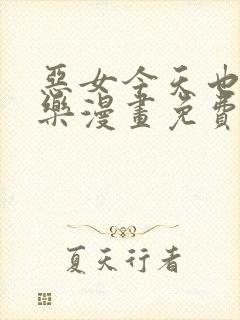 惡女今天也
樂漫畫免費
夏天行者